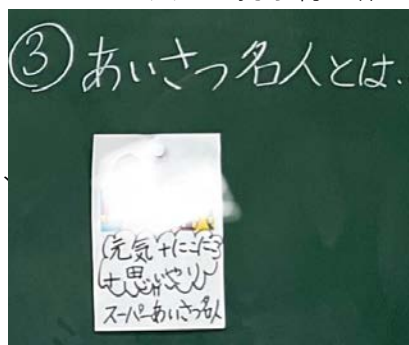 ③あいさつ名人とは、
元気+にこにこ
+思いやり
スーパーあいさつ名人